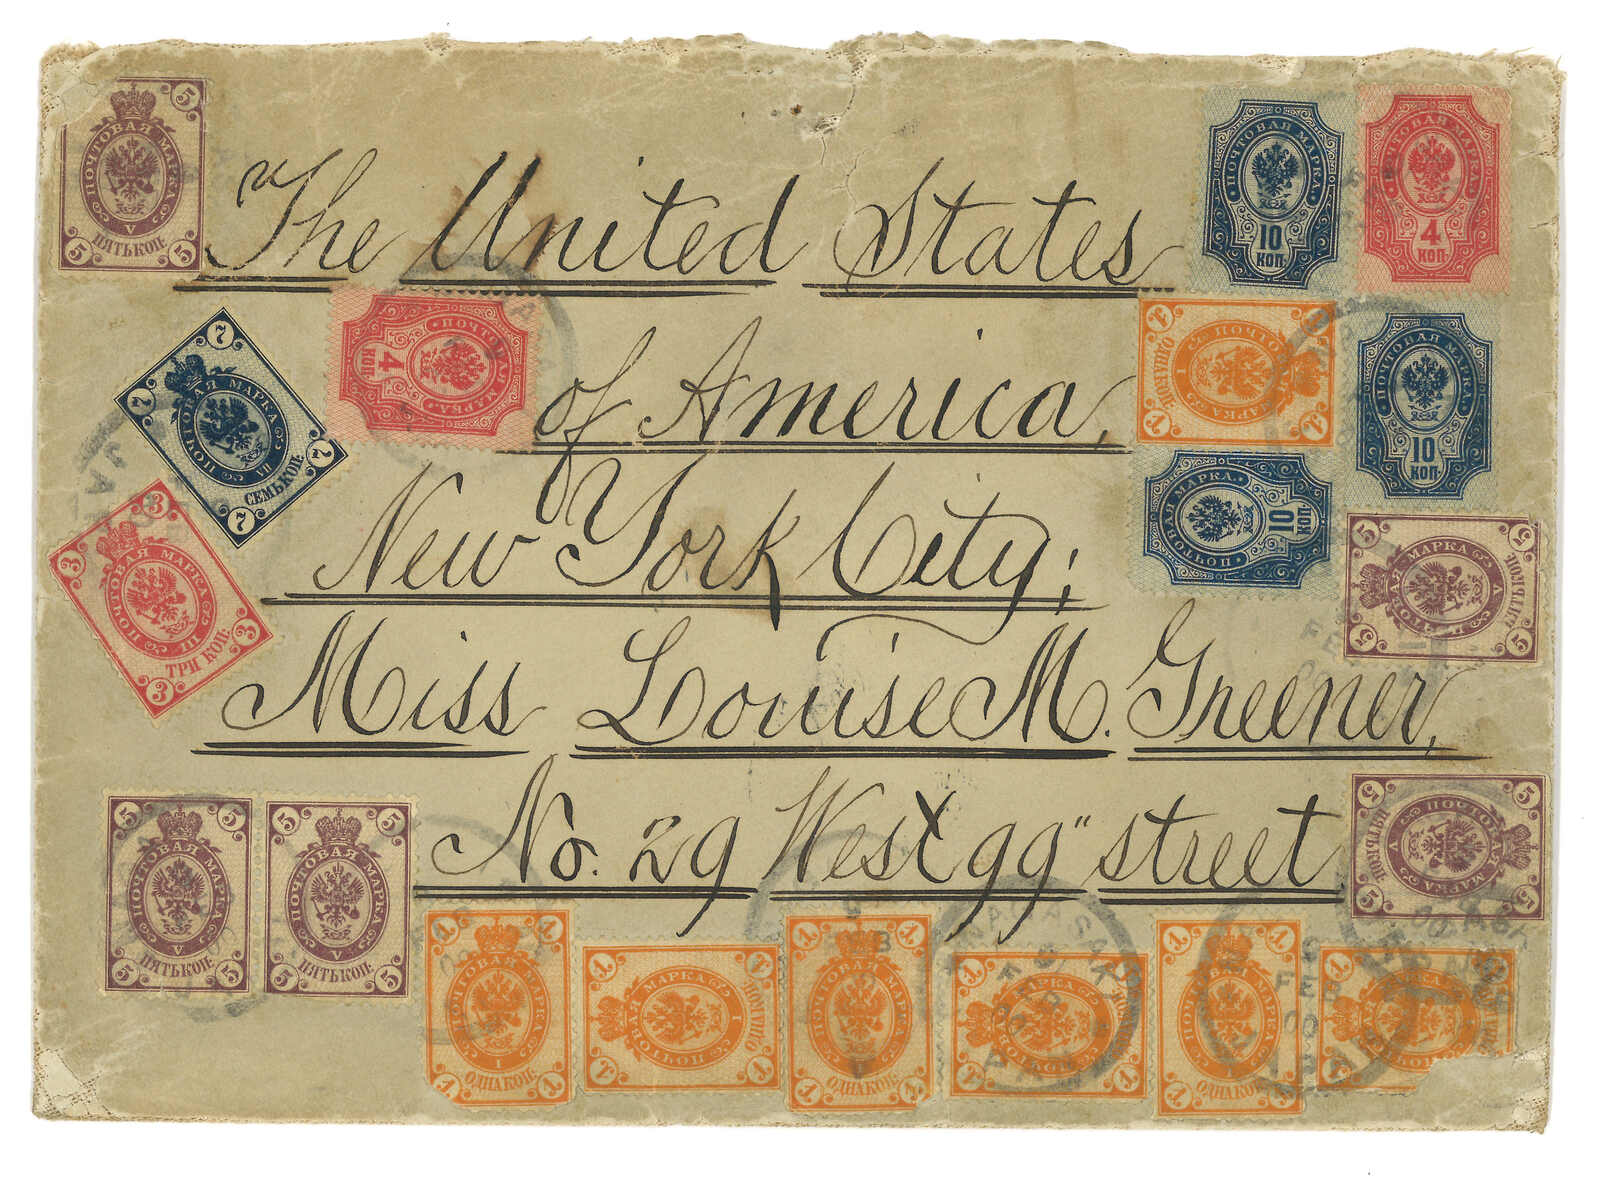 The United States
of America,
New York City;
Miss Louise M. Greener,
No. 29 West 99" street
5
ПОЧТОВАЯ МАРКА
V
ПЯТЬ КОП:
5 5
ПОЧТОВАЯ МАРКА
10
КОП.
ПОЧТОВАЯ МАРКА
4
КОП.
7 7
ПОЧТОВАЯ МАРКА
VII
СЕМЬ КОП:
7 7
ПОЧТОВАЯ МАРКА
4
КОП.
1
ПОЧТОВАЯ МАРКА
I
ОДНА КОП:
1 1
ПОЧТОВАЯ МАРКА
10
КОП.
ПОЧТОВАЯ МАРКА
10
КОП.
3 3
ПОЧТОВАЯ МАРКА
III
ТРИ КОП:
3 3
5 5
ПОЧТОВАЯ МАРКА
V
ПЯТЬ КОП:
5 5
5 5
ПОЧТОВАЯ МАРКА
V
ПЯТЬ КОП:
5 5
5 5
ПОЧТОВАЯ МАРКА
V
ПЯТЬ КОП:
5 5
5 5
ПОЧТОВАЯ МАРКА
V
ПЯТЬ КОП:
5 5
1 1
ПОЧТОВАЯ МАРКА
I
ОДНА КОП:
1 1
1 1
ПОЧТОВАЯ МАРКА
I
ОДНА КОП:
1 1
1 1
ПОЧТОВАЯ МАРКА
I
ОДНА КОП:
1 1
NAGASAKI
9
FEB
00
JAPAN
1 1
ПОЧТОВАЯ МАРКА
I
ОДНА КОП:
1 1
9
FEB
00
JAPAN
1
ПОЧТОВАЯ МАРКА